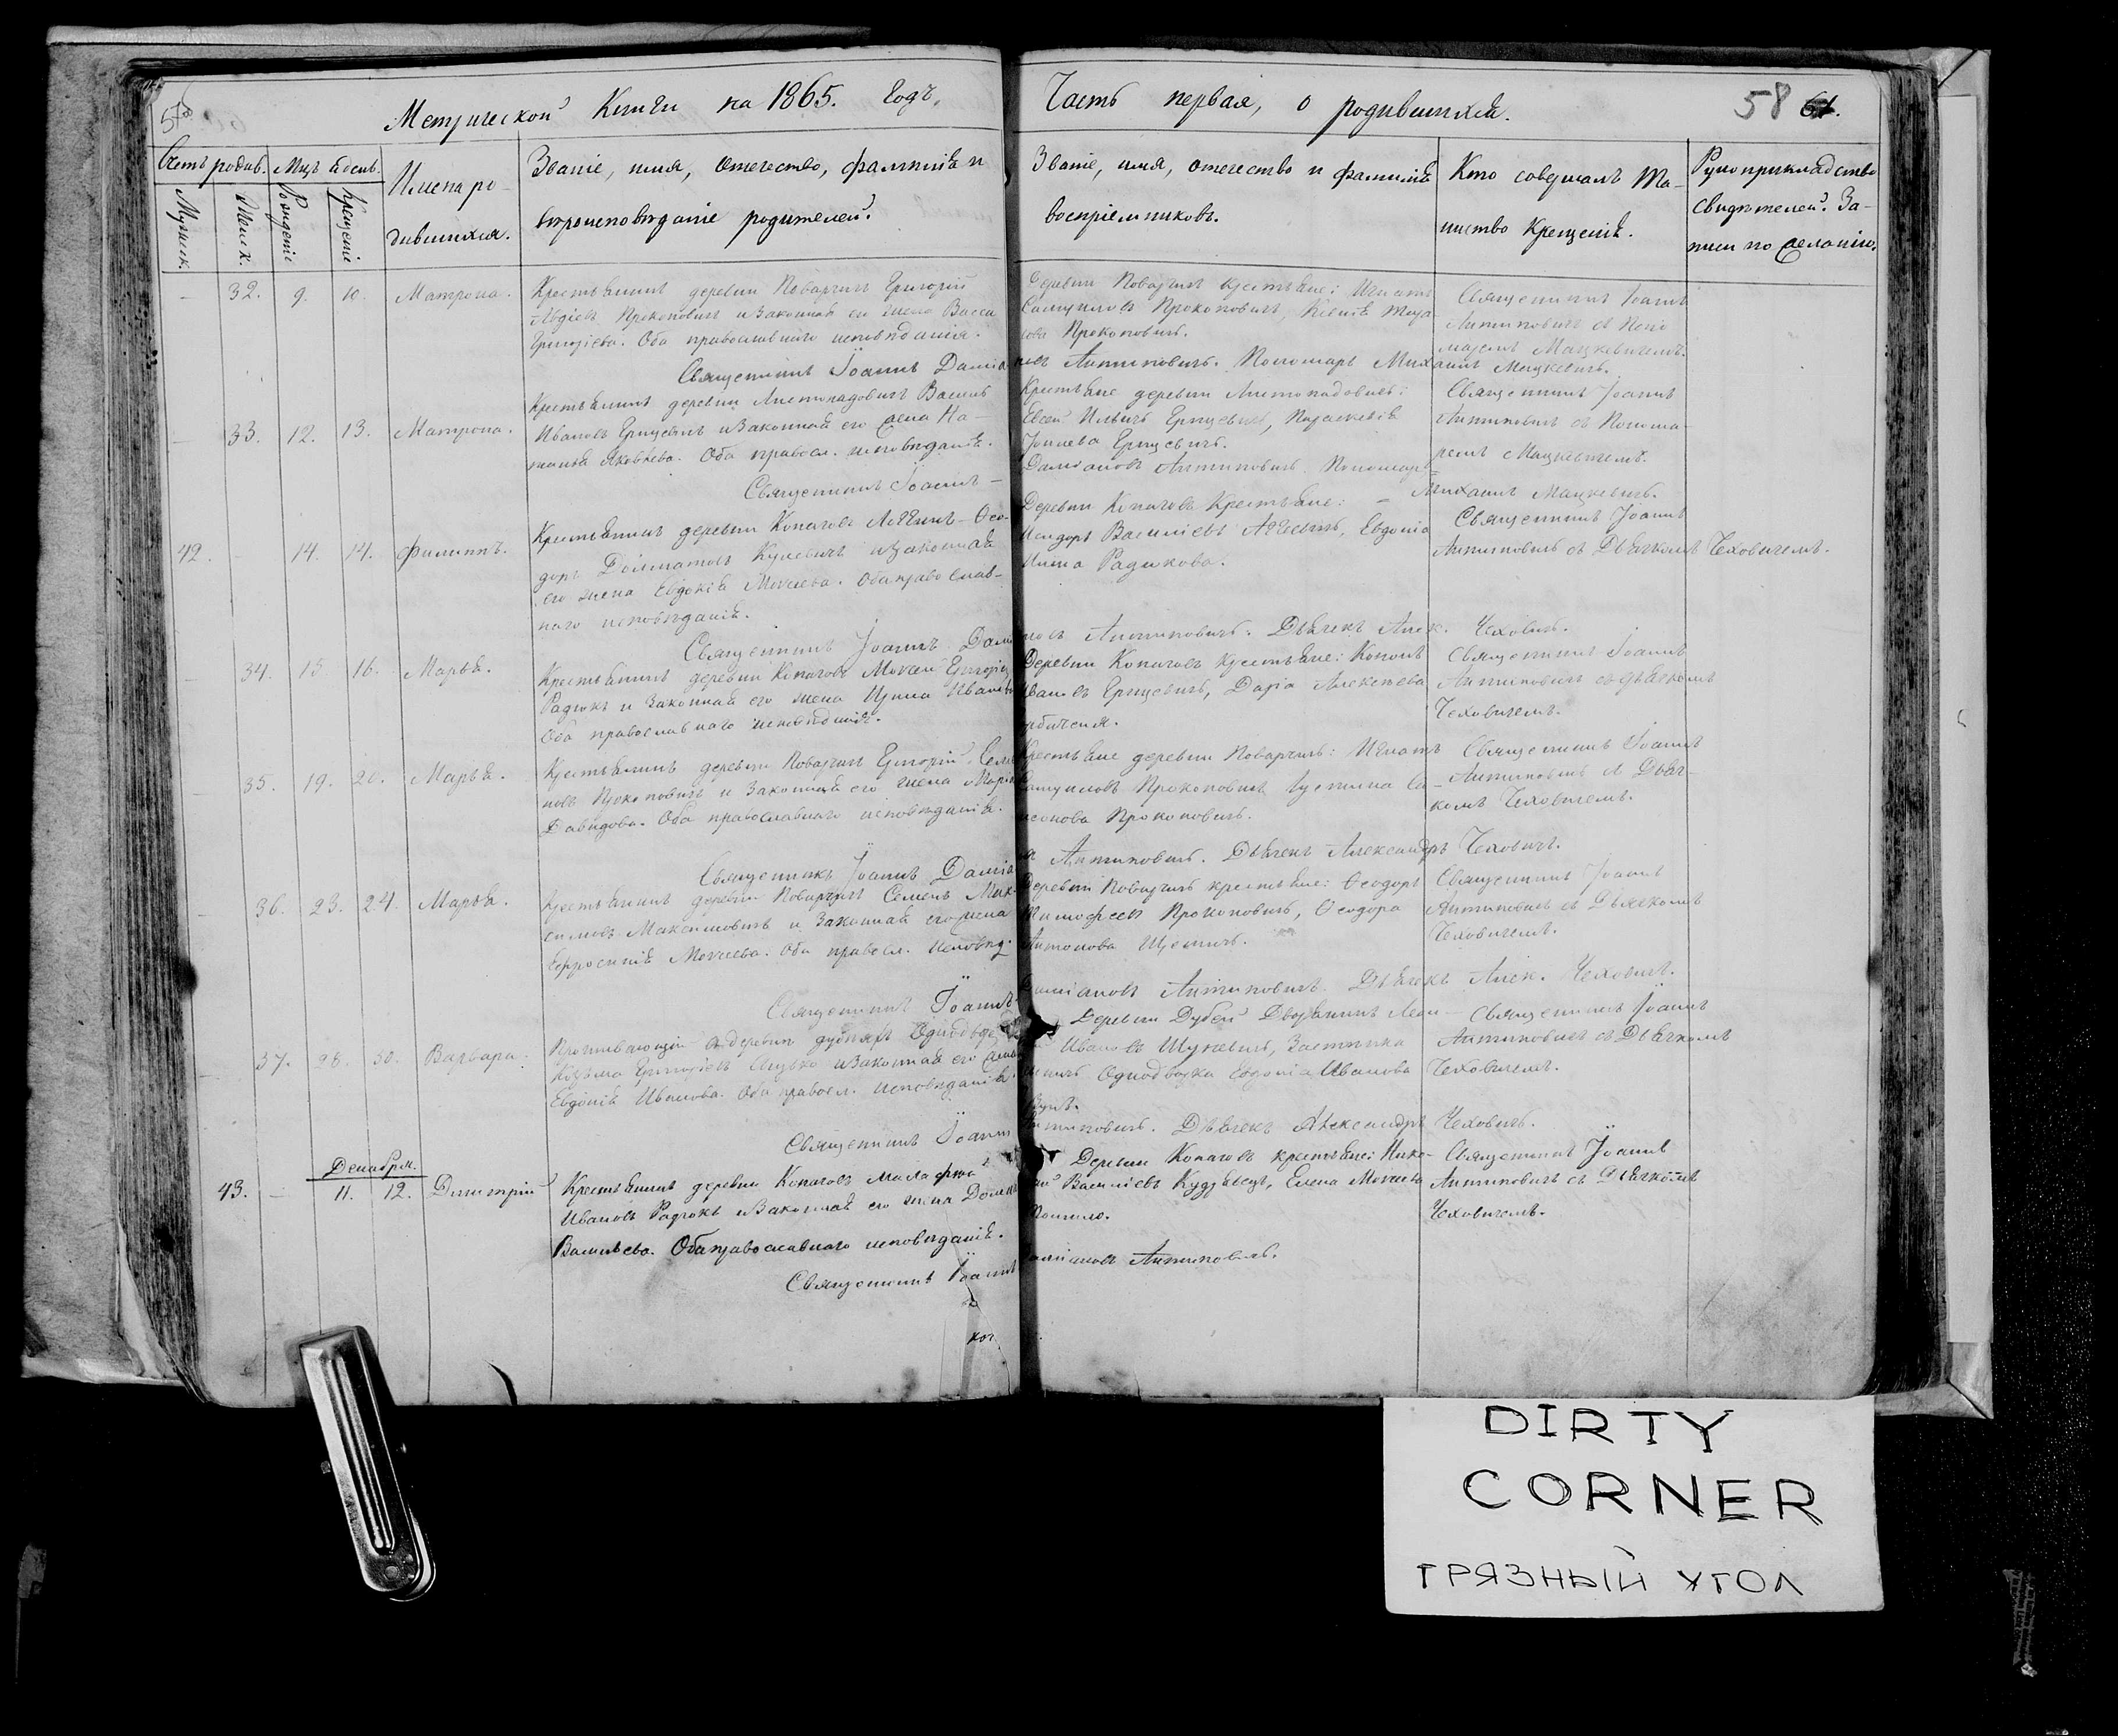 Метрической Книги на 1865. Годъ,
Часть первая, о родившихся.
58 61.
Счетъ родив.
Мцъ и день.
Имена ро-
дившихся.
Званіе, имя, отечество, фамилія и
вѣроисповѣданіе родителей.
Званіе, имя, отечество и фамилія
воспріемниковъ.
Кто совершалъ Та-
инство Крещенія.
Рукоприкладство
свидѣтелей За-
писи по желанію.
Мужеск.
Женск.
Рожденіе
Крещеніе
32. 9. 10. Матрона.
Крестьянинъ деревни Поварчич Григорій
Авдіевъ Прокоповичъ и Законная его жена Васса
Григоріева. Оба православнаго исповѣданія.
Деревни Поварчич крестьяне: Игнатъ
Самуиловъ Прокоповичъ, Ксенія
Прокоповичъ.
Священникъ Іоаннъ
Антиповичъ съ Поно
маремъ Мацкевичемъ.
Священникъ Іоаннъ Даміановъ Антиповичъ. Пономарь Михаилъ Мацкевичъ.
33. 12. 13. Матрона.
Крестьянинъ деревни Листопадовичъ Василь
Ивановъ Ермусевичъ и Законная его жена На-
талья Яковлева. Оба правосл. исповѣданія.
Крестьяне деревни Листопадовичъ:
Евсей Ильичъ, Параскевія
Священникъ Іоаннъ
Антиповичъ съ Понома-
ремъ Мацкевичемъ.
Священникъ Іоаннъ –
Даміановъ Антиповичъ. Пономарь
Михаилъ Мацкевичъ.
42. 14. 14. Филиппъ.
Крестьянинъ деревни Копачовъ Ѳео-
доръ Куневичъ и законная
его жена Евдокія Моисеева. Оба православ-
наго исповѣданія.
Деревни Копачовъ Крестьяне:
Исидоръ Василіевъ, Евдокія
Радюкова.
Священникъ Іоаннъ
Антиповичъ съ Дьячкомъ Чеховичемъ.
Священникъ Іоаннъ Даміановъ Антиповичъ. Дьячекъ Алек. Чеховичъ.
34. 15. 16. Марья.
Крестьянинъ деревни Копачовъ Мокей Григорьевъ
Радюкъ и Законная его жена Ирина Иванова
Оба православнаго исповѣданія.
Деревни Копачовъ крестьяне: Кононъ
Ивановъ, Дарія Алексѣева
Священникъ Іоаннъ
Антиповичъ съ дьячкомъ
Чеховичемъ.
35. 19. 20. Марья.
Крестьянинъ деревни Поварчич Григорій Семе
новъ Прокоповичъ и Законная его жена Марія
Давидова. Оба православнаго исповѣданія.
Крестьяне деревни Поварчич: Игнатъ
Самуиловъ Прокоповичъ Іустина Си-
меонова Прокоповичъ.
Священникъ Іоаннъ
Антиповичъ съ Дьяч-
комъ Чеховичемъ.
Священникъ Іоаннъ Даміановъ Антиповичъ. Дьячекъ Александръ Чеховичъ.
36. 23. 24. Марья.
Крестьянинъ деревни Поварчич Семенъ Мак-
симовъ Максимовичъ и Законная его жена
Ефросинія Моисеева. Оба правосл. исповѣд.
Деревни Поварчич крестьяне: Ѳеодоръ
Тимофеевъ Прокоповичъ, Ѳеодора
Антонова
Священникъ Іоаннъ
Антиповичъ съ Дьячкомъ
Чеховичемъ.
Священникъ Іоаннъ Даміановъ Антиповичъ. Дьячекъ Алек. Чеховичъ.
37. 28. 30. Варвара.
Проживающій в деревни Однодворецъ
Козьма Григоріевъ и Законная его жена
Евдокія Иванова. Оба правосл. исповѣданія.
Деревни Дубей Дворянинъ Леон
Ивановъ, Застѣнка
Однодворка Евдокія Иванова
Священникъ Іоаннъ
Антиповичъ съ Дьячкомъ
Чеховичемъ.
Священникъ Іоаннъ Антиповичъ. Дьячекъ Александръ Чеховичъ.
Декабря.
43. – 11. 12. Димитрій
Крестьянинъ деревни Копачовъ Малафей
Ивановъ Радюкъ и Законная его жена
Васильева. Оба православнаго исповѣданія.
Деревни Копачовъ крестьяне: Нико-
лай Василіевъ, Елена Моисеева
Священникъ Іоаннъ
Антиповичъ съ Дьячкомъ
Чеховичемъ.
Священникъ Іоаннъ Даміановъ Антиповичъ.
DIRTY
CORNER
ГРЯЗНЫЙ УГОЛ